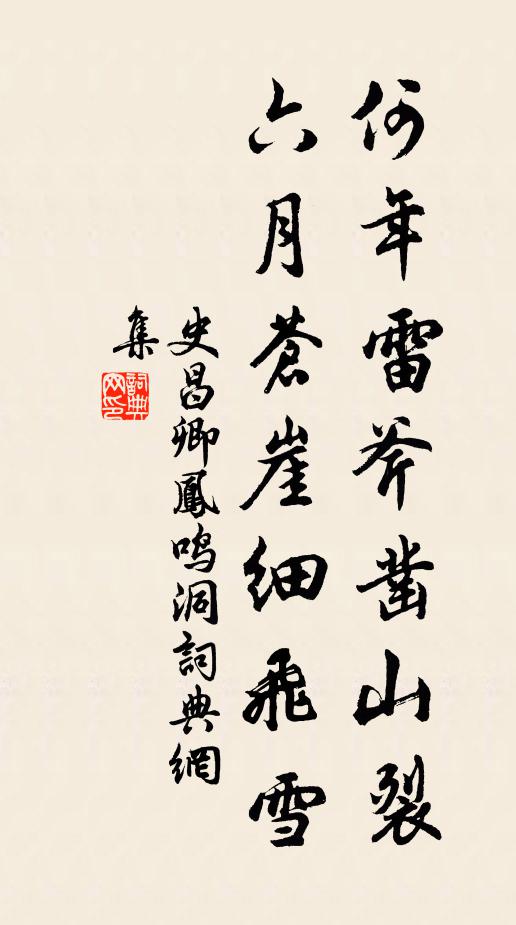 何年雷斧凿山裂
六月蒼崖細飛雪
史昌卿鳳鸣洞詞典網
集
詞典
网印